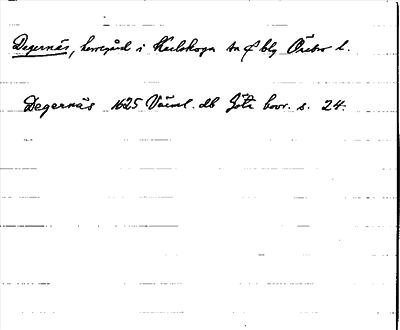 Degernäs, herregård i Karlskoga sn o blg Örebro l.
Degernäs 1625 Värml. db Göta hovr. s. 24.